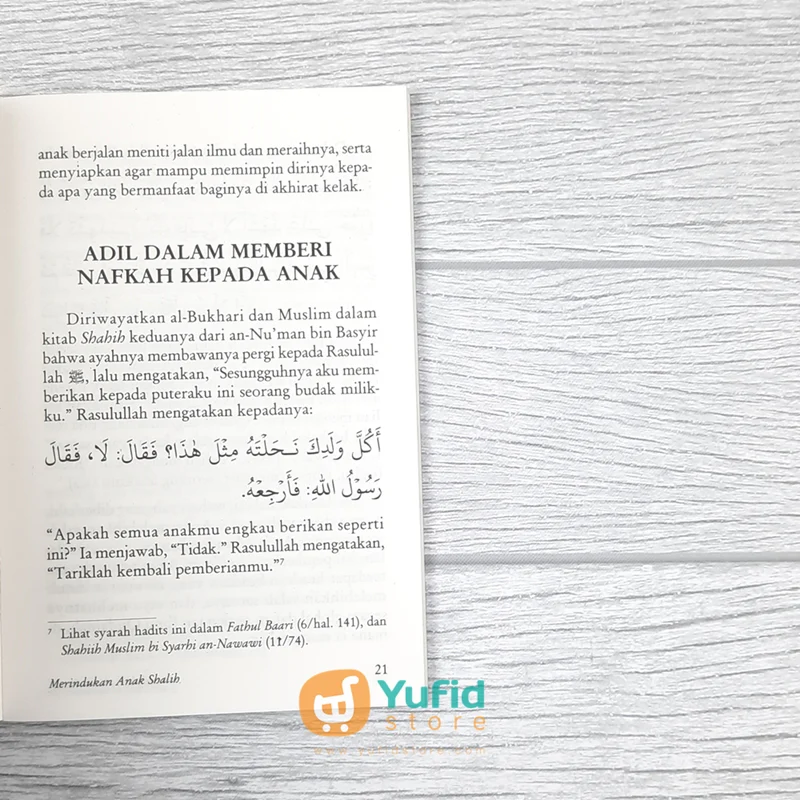 anak berjalan meniti jalan ilmu dan meraihnya, serta
menyiapkan agar mampu memimpin dirinya kepa-
da apa yang bermanfaat baginya di akhirat kelak.
ADIL DALAM MEMBERI
NAFKAH KEPADA ANAK
Diriwayatkan al-Bukhari dan Muslim dalam
kitab Shahih keduanya dari an-Nu'man bin Basyir
bahwa ayahnya membawanya pergi kepada Rasulul-
lah ﷺ, lalu mengatakan, “Sesungguhnya aku mem-
berikan kepada puteraku ini seorang budak milik-
ku.” Rasulullah mengatakan kepadanya:
أَكُلَّ وَلَدِكَ نَحَلْتَهُ مِثْلَ هٰذَا؟ فَقَالَ: لَا، فَقَالَ
رَسُوْلُ اللهِ: فَأَرْجِعْهُ.
“Apakah semua anakmu engkau berikan seperti
ini?” Ia menjawab, “Tidak.” Rasulullah mengatakan,
“Tariklah kembali pemberianmu.”⁷
⁷ Lihat syarah hadits ini dalam Fathul Baari (6/hal. 141), dan
Shahiih Muslim bi Syarhi an-Nawawi (11/74).
Merindukan Anak Shalih 21
Yufid
store
www.yufidstore.com